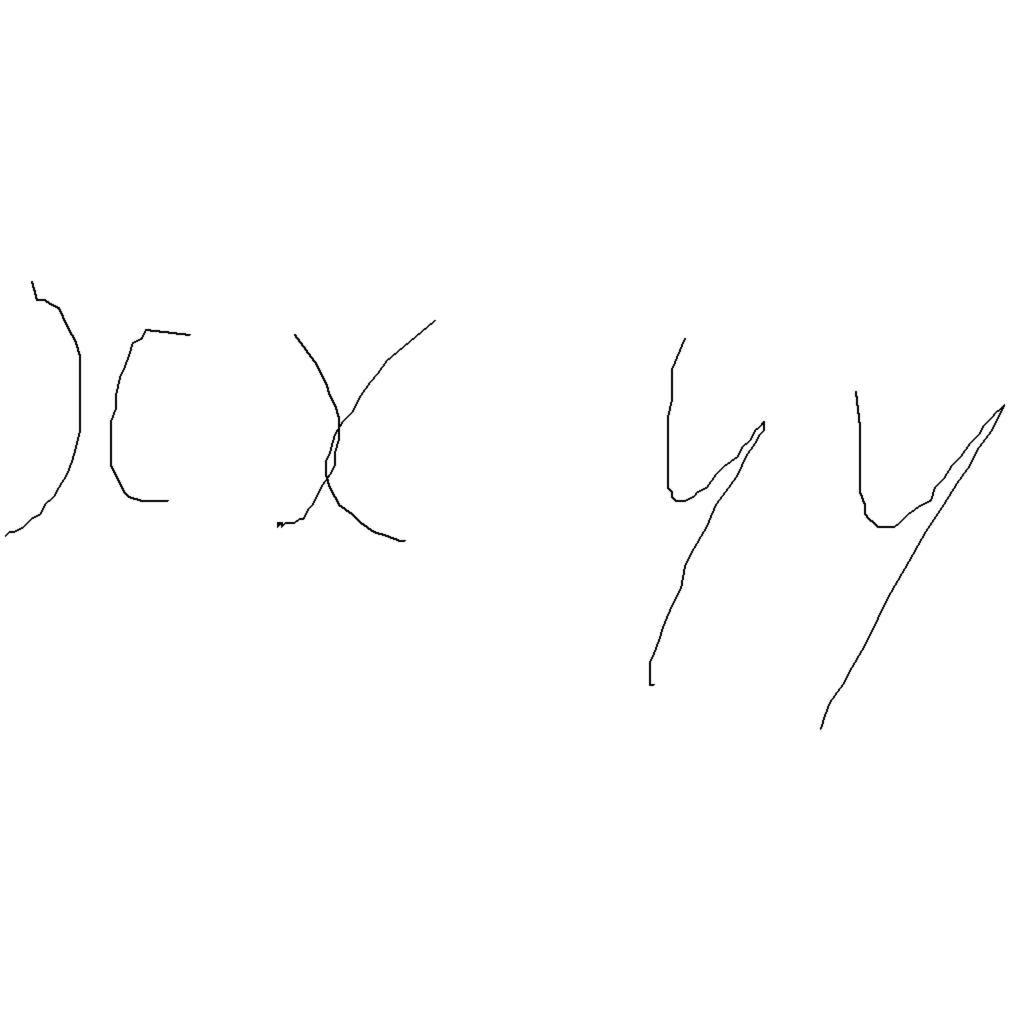 xx yy